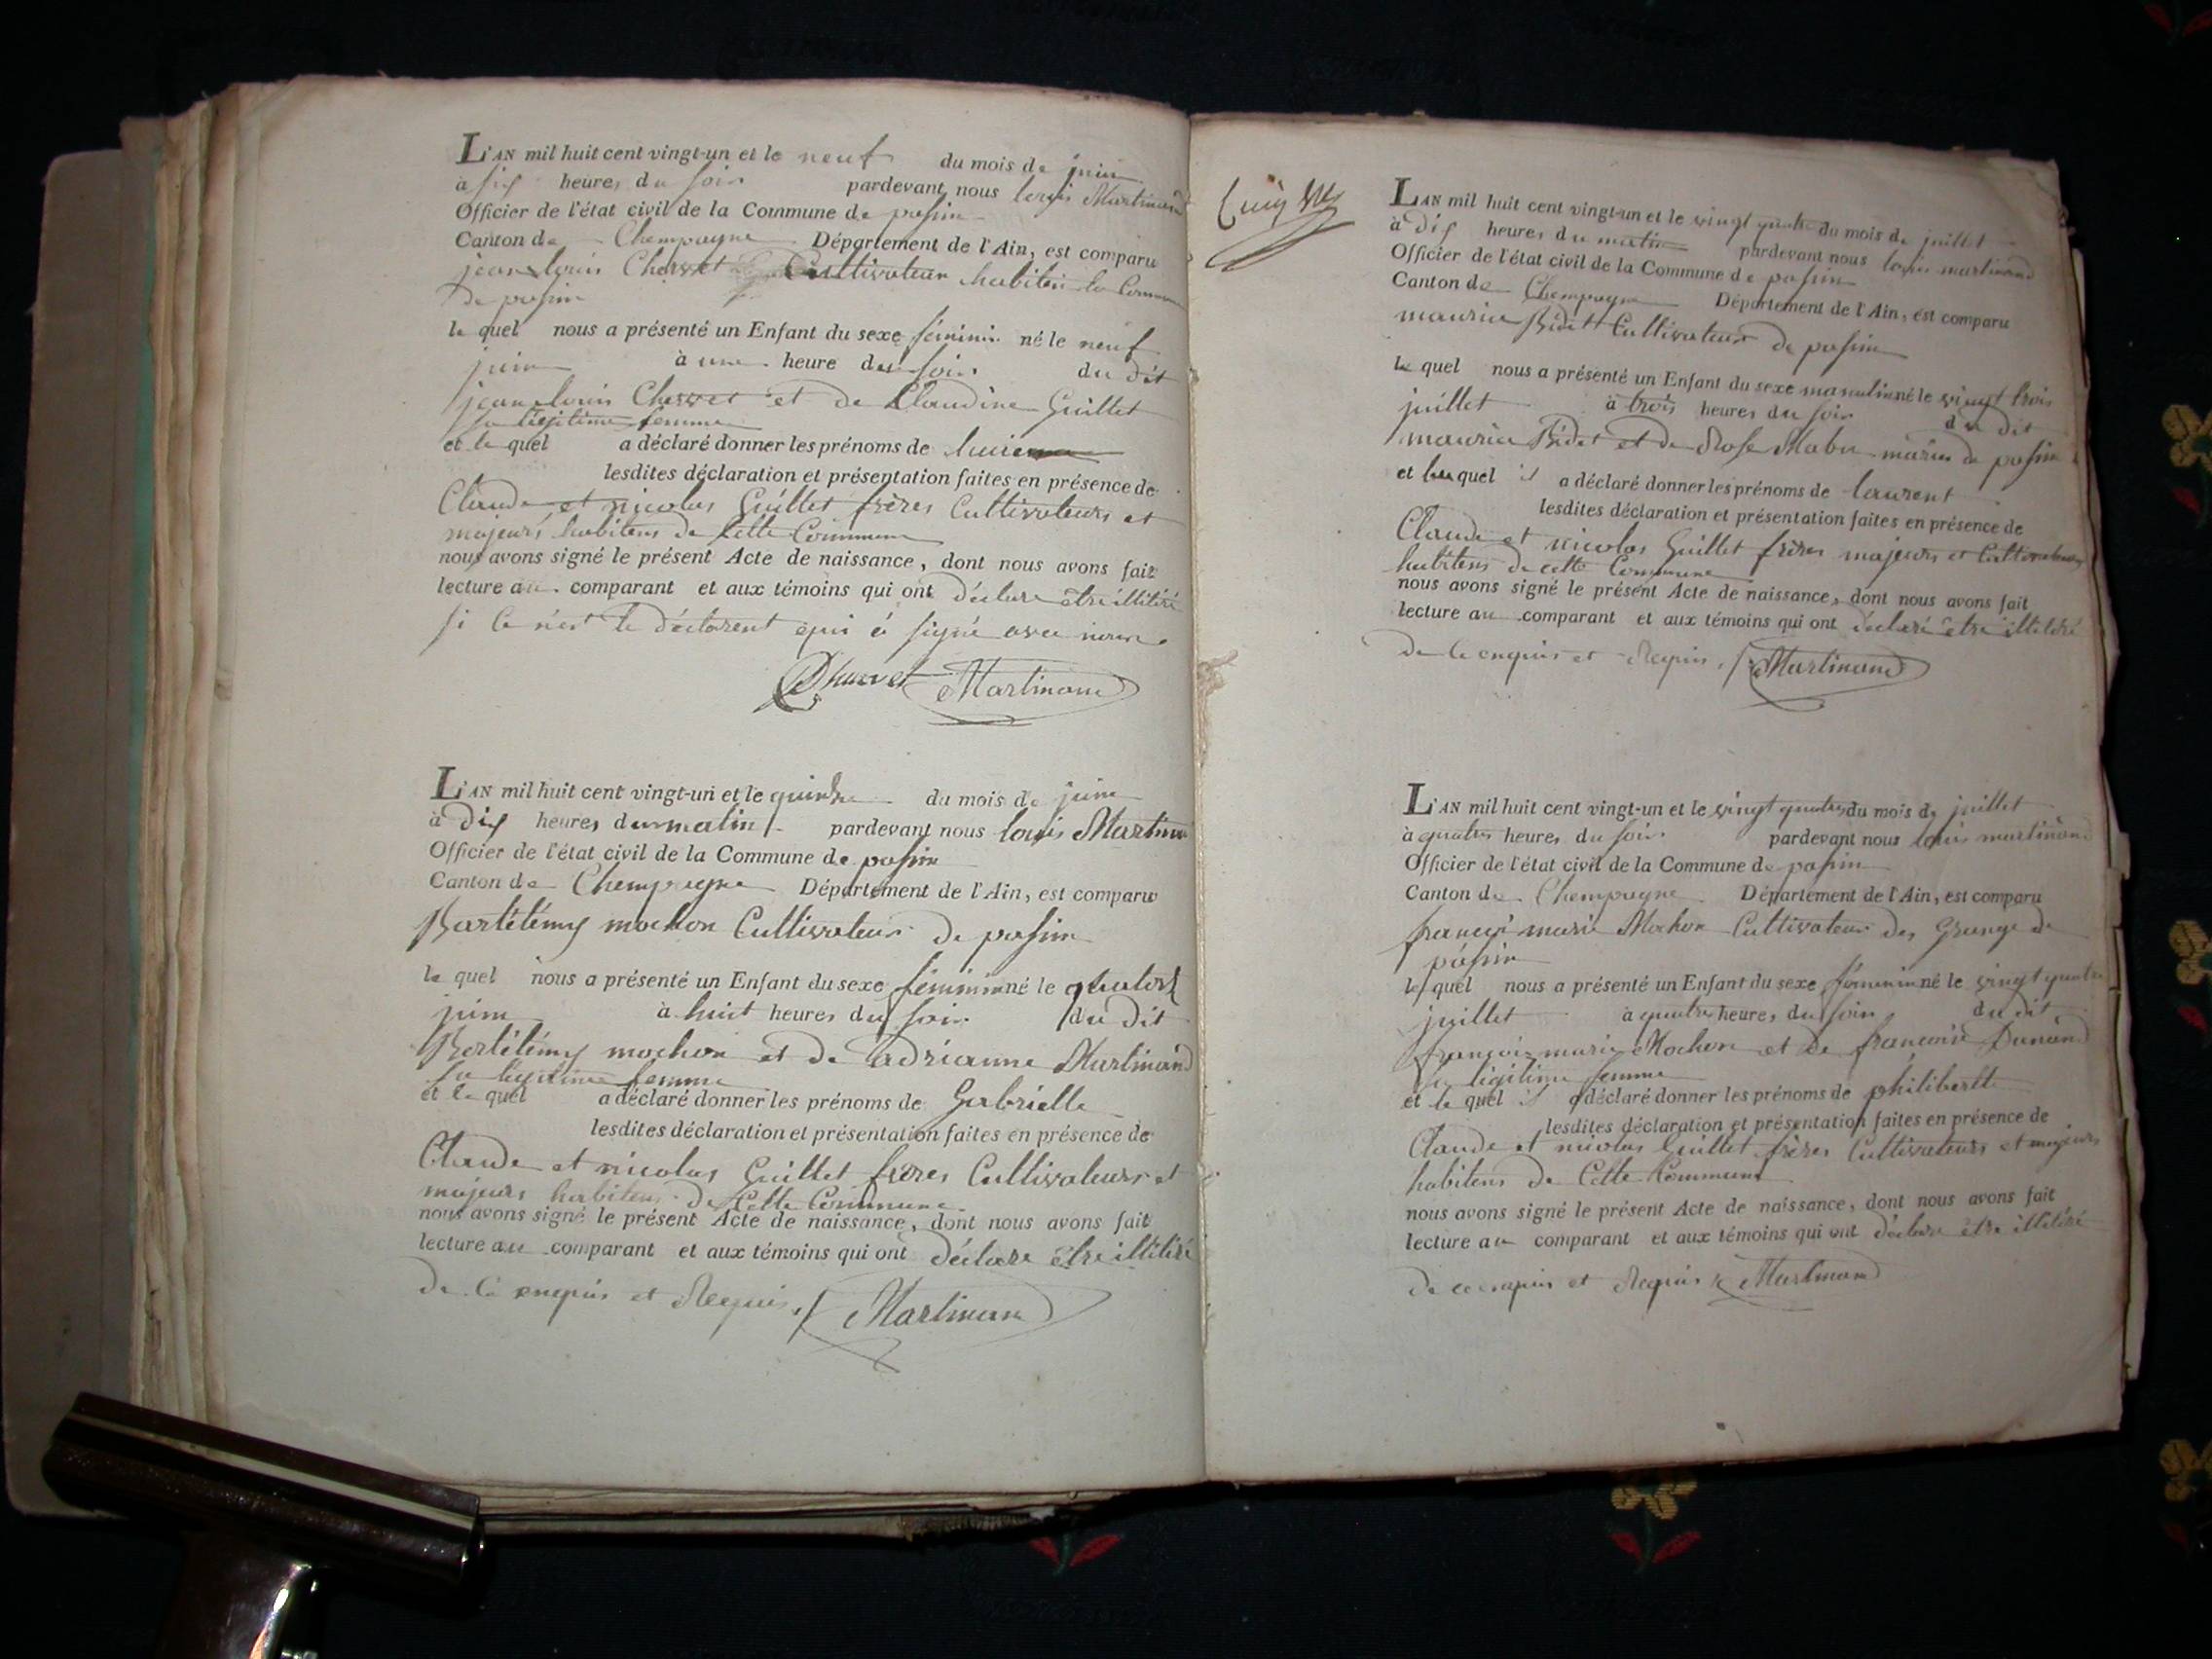 L'AN mil huit cent vingt-un et le neuf du mois de juin
à six heures du soir pardevant nous louis Martinand
Officier de l'état civil de la Commune de passin
Canton de Champagne Département de l'Ain, est comparu
jean louis Chervet Cultivateur habitan la Commune
de passin
le quel nous a présenté un Enfant du sexe féminin né le neuf
juin à une heure du soir du dit
jean louis Chervet et de Claudine Guillet
sa légitime femme
et le quel a déclaré donner les prénoms de
lesdites déclaration et présentation faites en présence de
Claude et nicolas Guillet frères Cultivateurs et
majeurs habitens de Cette Commune
nous avons signé le présent Acte de naissance, dont nous avons fait
lecture au comparant et aux témoins qui ont déclare être illitéré
si ce n'est le déclarent qui a signé avec nous
Chervet Martinand
L'AN mil huit cent vingt-un et le quinze du mois de juin
à dix heures du matin pardevant nous louis Martinand
Officier de l'état civil de la Commune de passin
Canton de Champagne Département de l'Ain, est comparu
Bartélémy mochon Cultivateur de passin
le quel nous a présenté un Enfant du sexe féminin né le quatorze
juin à huit heures du soir du dit
Bartélémy mochon et de adrianne Martinand
sa légitime femme
et le quel a déclaré donner les prénoms de Gabrielle
lesdites déclaration et présentation faites en présence de
Claude et nicolas Guillet frères Cultivateurs et
majeurs habitens de Cette Commune
nous avons signé le présent Acte de naissance, dont nous avons fait
lecture au comparant et aux témoins qui ont déclare être illitéré
de Ce enquis et Requis Martinand
L'AN mil huit cent vingt-un et le vingt quatre du mois de juillet
à dix heures du matin pardevant nous louis martinand
Officier de l'état civil de la Commune de passin
Canton de Champagne Département de l'Ain, est comparu
maurice Bidet Cultivateur de passin
le quel nous a présenté un Enfant du sexe masculin né le vingt trois
juillet à trois heures du soir du dit
maurice Bidet et de Rose Mabu mariés de passin
et le quel a déclaré donner les prénoms de laurent
lesdites déclaration et présentation faites en présence de
Claude et nicolas Guillet frères majeurs et Cultivateurs
habitens de cette Commune
nous avons signé le présent Acte de naissance, dont nous avons fait
lecture au comparant et aux témoins qui ont déclaré être illitéré
de Ce enquis et Requis Martinand
L'AN mil huit cent vingt-un et le vingt quatre du mois de juillet
à quatre heures du soir pardevant nous louis martinand
Officier de l'état civil de la Commune de passin
Canton de Champagne Département de l'Ain, est comparu
françois marie Mochon Cultivateur des Grange de
passin
le quel nous a présenté un Enfant du sexe féminin né le vingt quatre
juillet à quatre heures du soir du dit
françois marie Mochon et de françoise Dunand
sa légitime femme
et le quel a déclaré donner les prénoms de philiberte
lesdites déclaration et présentation faites en présence de
Claude et nicolas Guillet frères Cultivateurs et majeurs
habitens de Cette Commune
nous avons signé le présent Acte de naissance, dont nous avons fait
lecture au comparant et aux témoins qui ont déclare être illitéré
de ce enquis et Requis Martinand